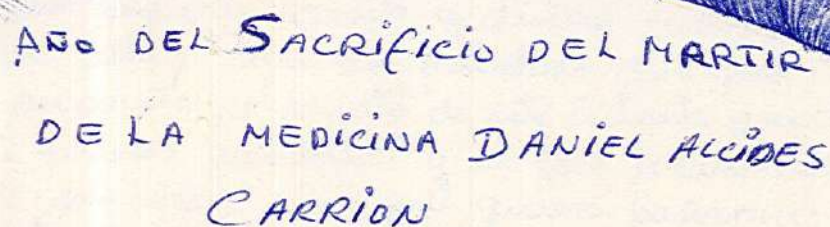 AÑO DEL SACRIFICIO DEL MARTIR
DE LA MEDICINA DANIEL ALCIDES
CARRION